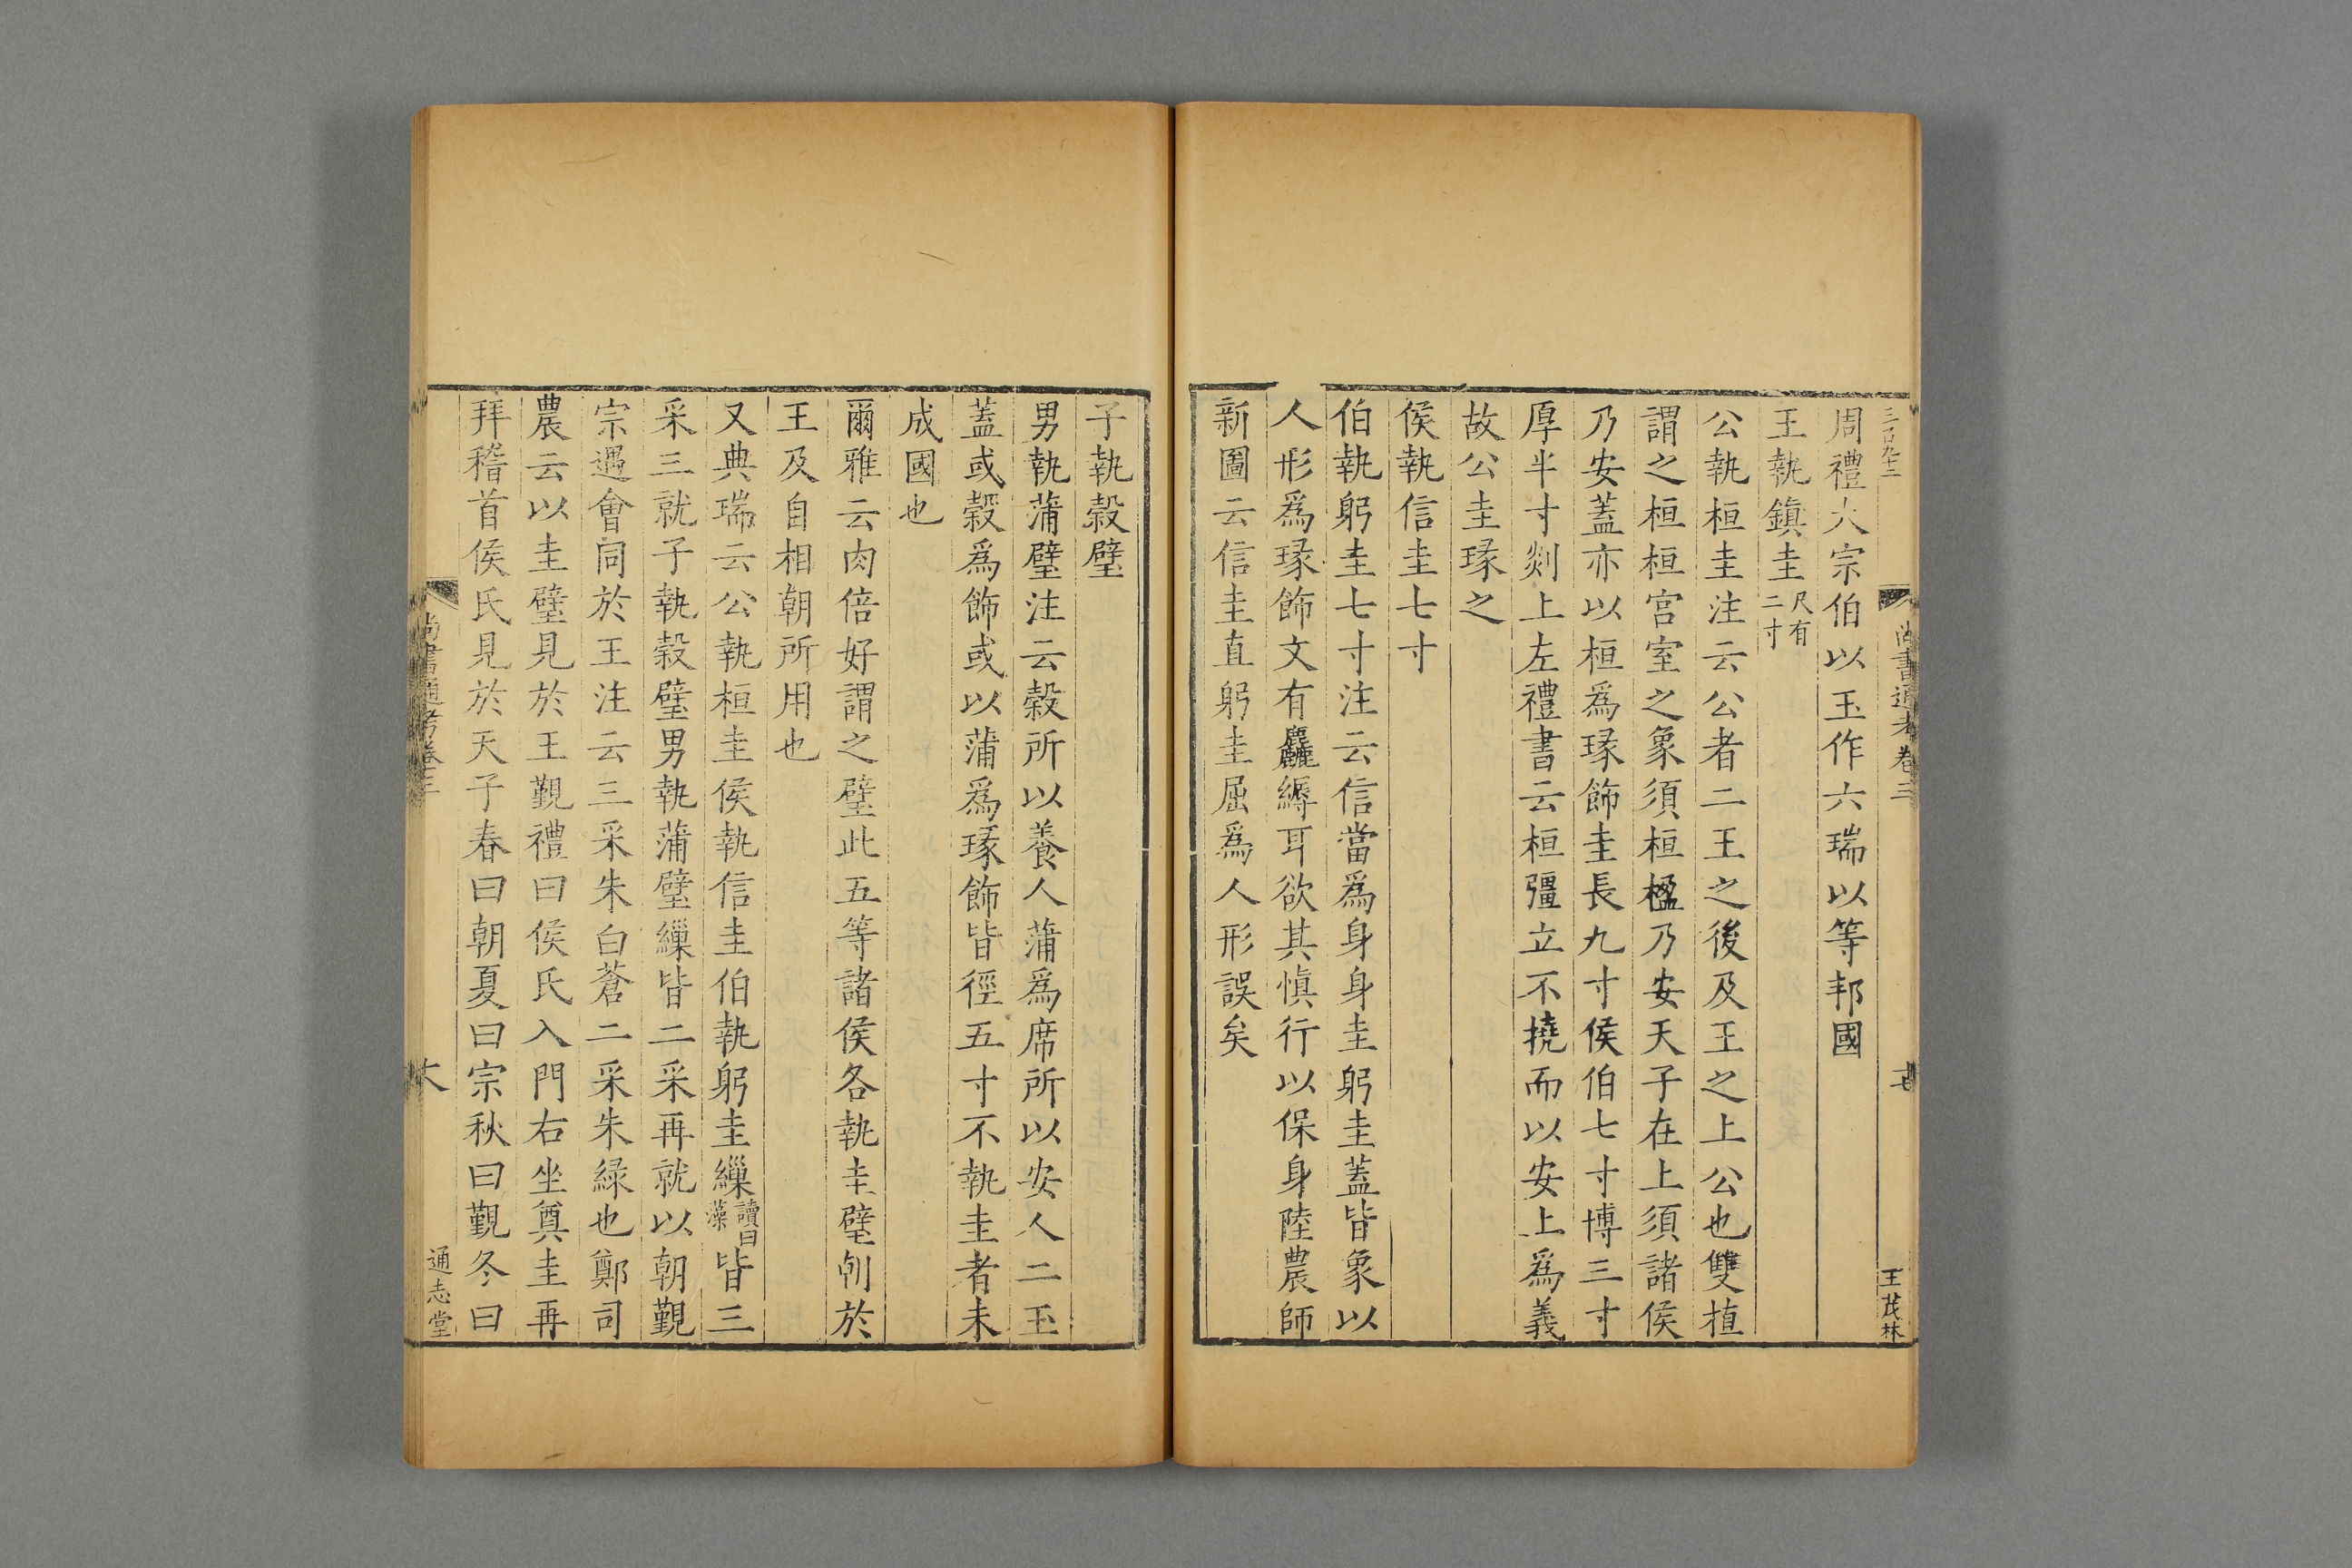 周禮大宗伯以玉作六瑞以等邦國
王執鎮圭尺有二寸
公執桓圭注云公者二王之後及王之上公也雙植
謂之桓桓宮室之象須桓楹乃安天子在上須諸侯
乃安蓋亦以桓爲瑑飾圭長九寸侯伯七寸博三寸
厚半寸剡上左禮書云桓彊立不撓而以安上爲義
故公圭瑑之
侯執信圭七寸
伯執躬圭七寸注云信當爲身身圭躬圭蓋皆象以
人形爲瑑飾文有麤縟耳欲其愼行以保身陸農師
新圖云信圭直躬圭屈爲人形誤矣
尚書通考卷三
王茂林
子執穀璧
男執蒲璧注云穀所以養人蒲爲席所以安人二玉
蓋或穀爲飾或以蒲爲瑑飾皆徑五寸不執圭者未
成國也
爾雅云肉倍好謂之璧此五等諸侯各執圭璧朝於
王及自相朝所用也
又典瑞云公執桓圭侯執信圭伯執躬圭繅讀曰藻皆三
采三就子執穀璧男執蒲璧繅皆二采再就以朝覲
宗遇會同於王注云三采朱白蒼二采朱綠也鄭司
農云以圭璧見於王覲禮曰侯氏入門右坐奠圭再
拜稽首侯氏見於天子春曰朝夏曰宗秋曰覲冬曰
尚書通考卷三
通志堂